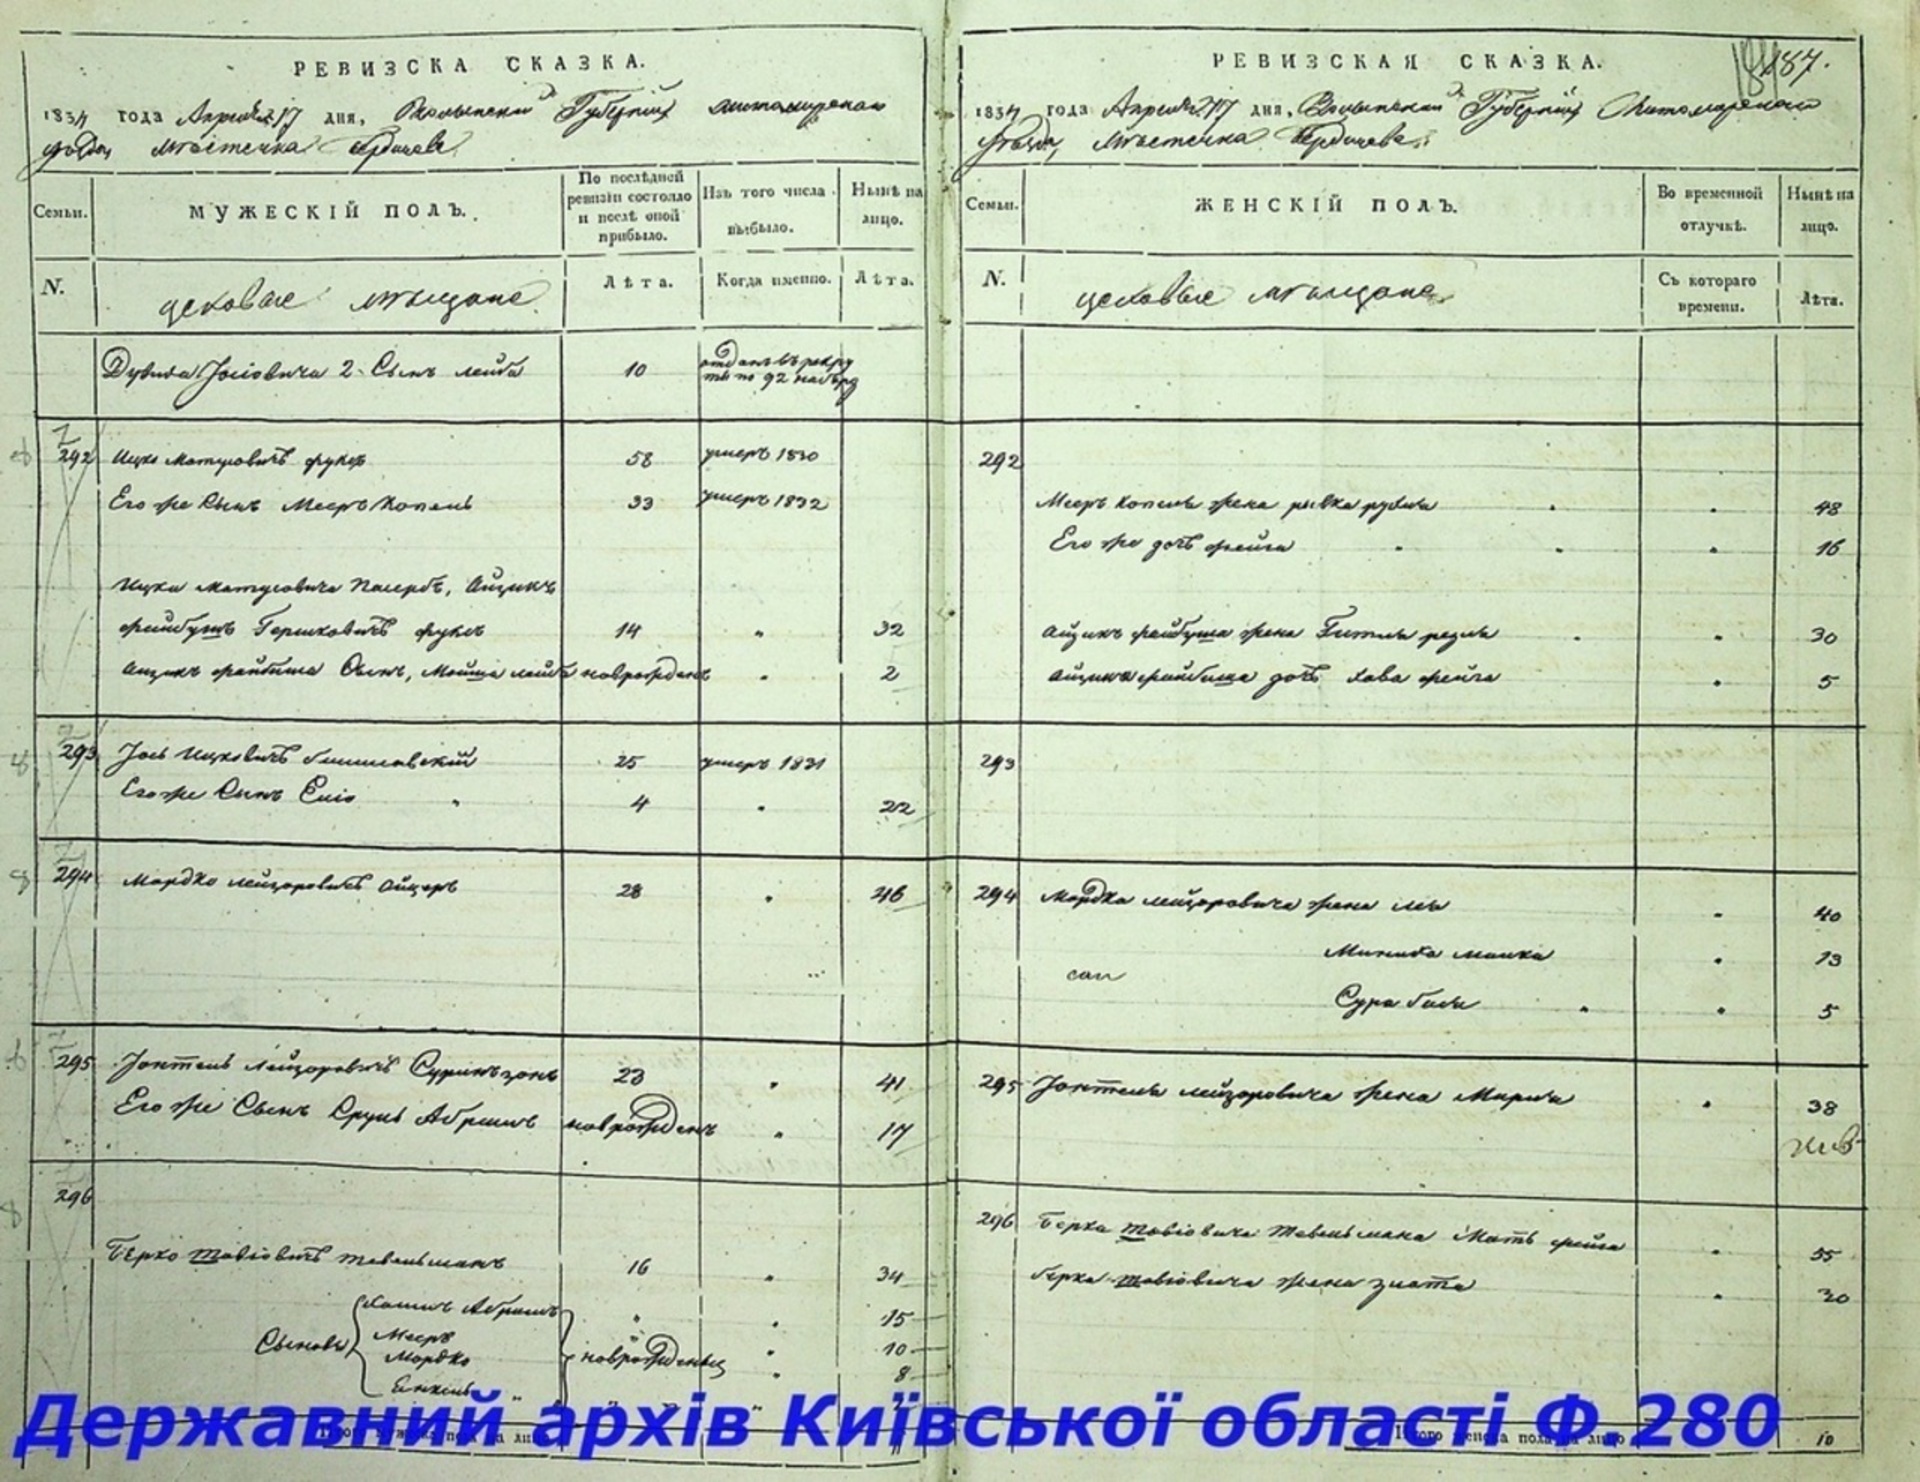 РЕВИЗСКА СКАЗКА.
1834 года Апреля 17 дня, Волынской Губерніи Житомирскаго
уѣзда, Мѣстечка Бердичева
Семьи.
МУЖЕСКІЙ ПОЛЪ.
По послѣдней ревизіи состояло и послѣ оной прибыло.
Изъ того числа выбыло.
Нынѣ на лицо.
N.
цеховые мѣщане
Лѣта.
Когда именно.
Лѣта.
Дувида Іосіовича 2 Сынъ лейба 10 отданъ въ рекру
ты по 92 набору
292 Ицко Матусовичъ фуксъ 58 умеръ 1830
Его же Сынъ Мееръ Копель 33 умеръ 1832
Ицка Матусовича Пасербъ, Айзикъ
фейбушъ Гершковичъ фуксъ 14 " 32
Айзикъ фейбиша Сынъ, Мойша лейба новорожденъ " 2
293 Іось Ицковичъ 25 умеръ 1831
Его же Сынъ 4 " 22
294 Мордко лейзоровичъ 28 " 46
295 Лейзоровичъ 23 " 41
Его же Сынъ Сруль Абрамъ новорожденъ " 17
296
Берко товіовичъ 16 " 34
Сыновья
Хаимъ Абрамъ " " 15
Мееръ " 10
Мордко новорожденны " 8
Енкель
РЕВИЗСКАЯ СКАЗКА.
187.
1834 года Апреля 17 дня, Волынской Губерніи Житомирскаго
уѣзда, Мѣстечка Бердичева
Семьи.
ЖЕНСКІЙ ПОЛЪ.
Во временной отлучкѣ.
Нынѣ на лицо.
N.
цеховые мѣщане
Съ котораго времени.
Лѣта.
292
Мееръ Копеля жена рывка рухля " 48
Его же дочь фейга " 16
Айзикъ фейбуша жена Гитля " 30
Айзикъ фейбиша дочь хава фейга " 5
293
294 Мордка лейзоровича жена " 40
" 13
Сура " 5
295 лейзоровича жена " 38
296 Берка товіовича Мать фейга " 55
берка товіовича жена злота " 30
Итого женска пола на лицо 10
Державний архів Київської області Ф 280